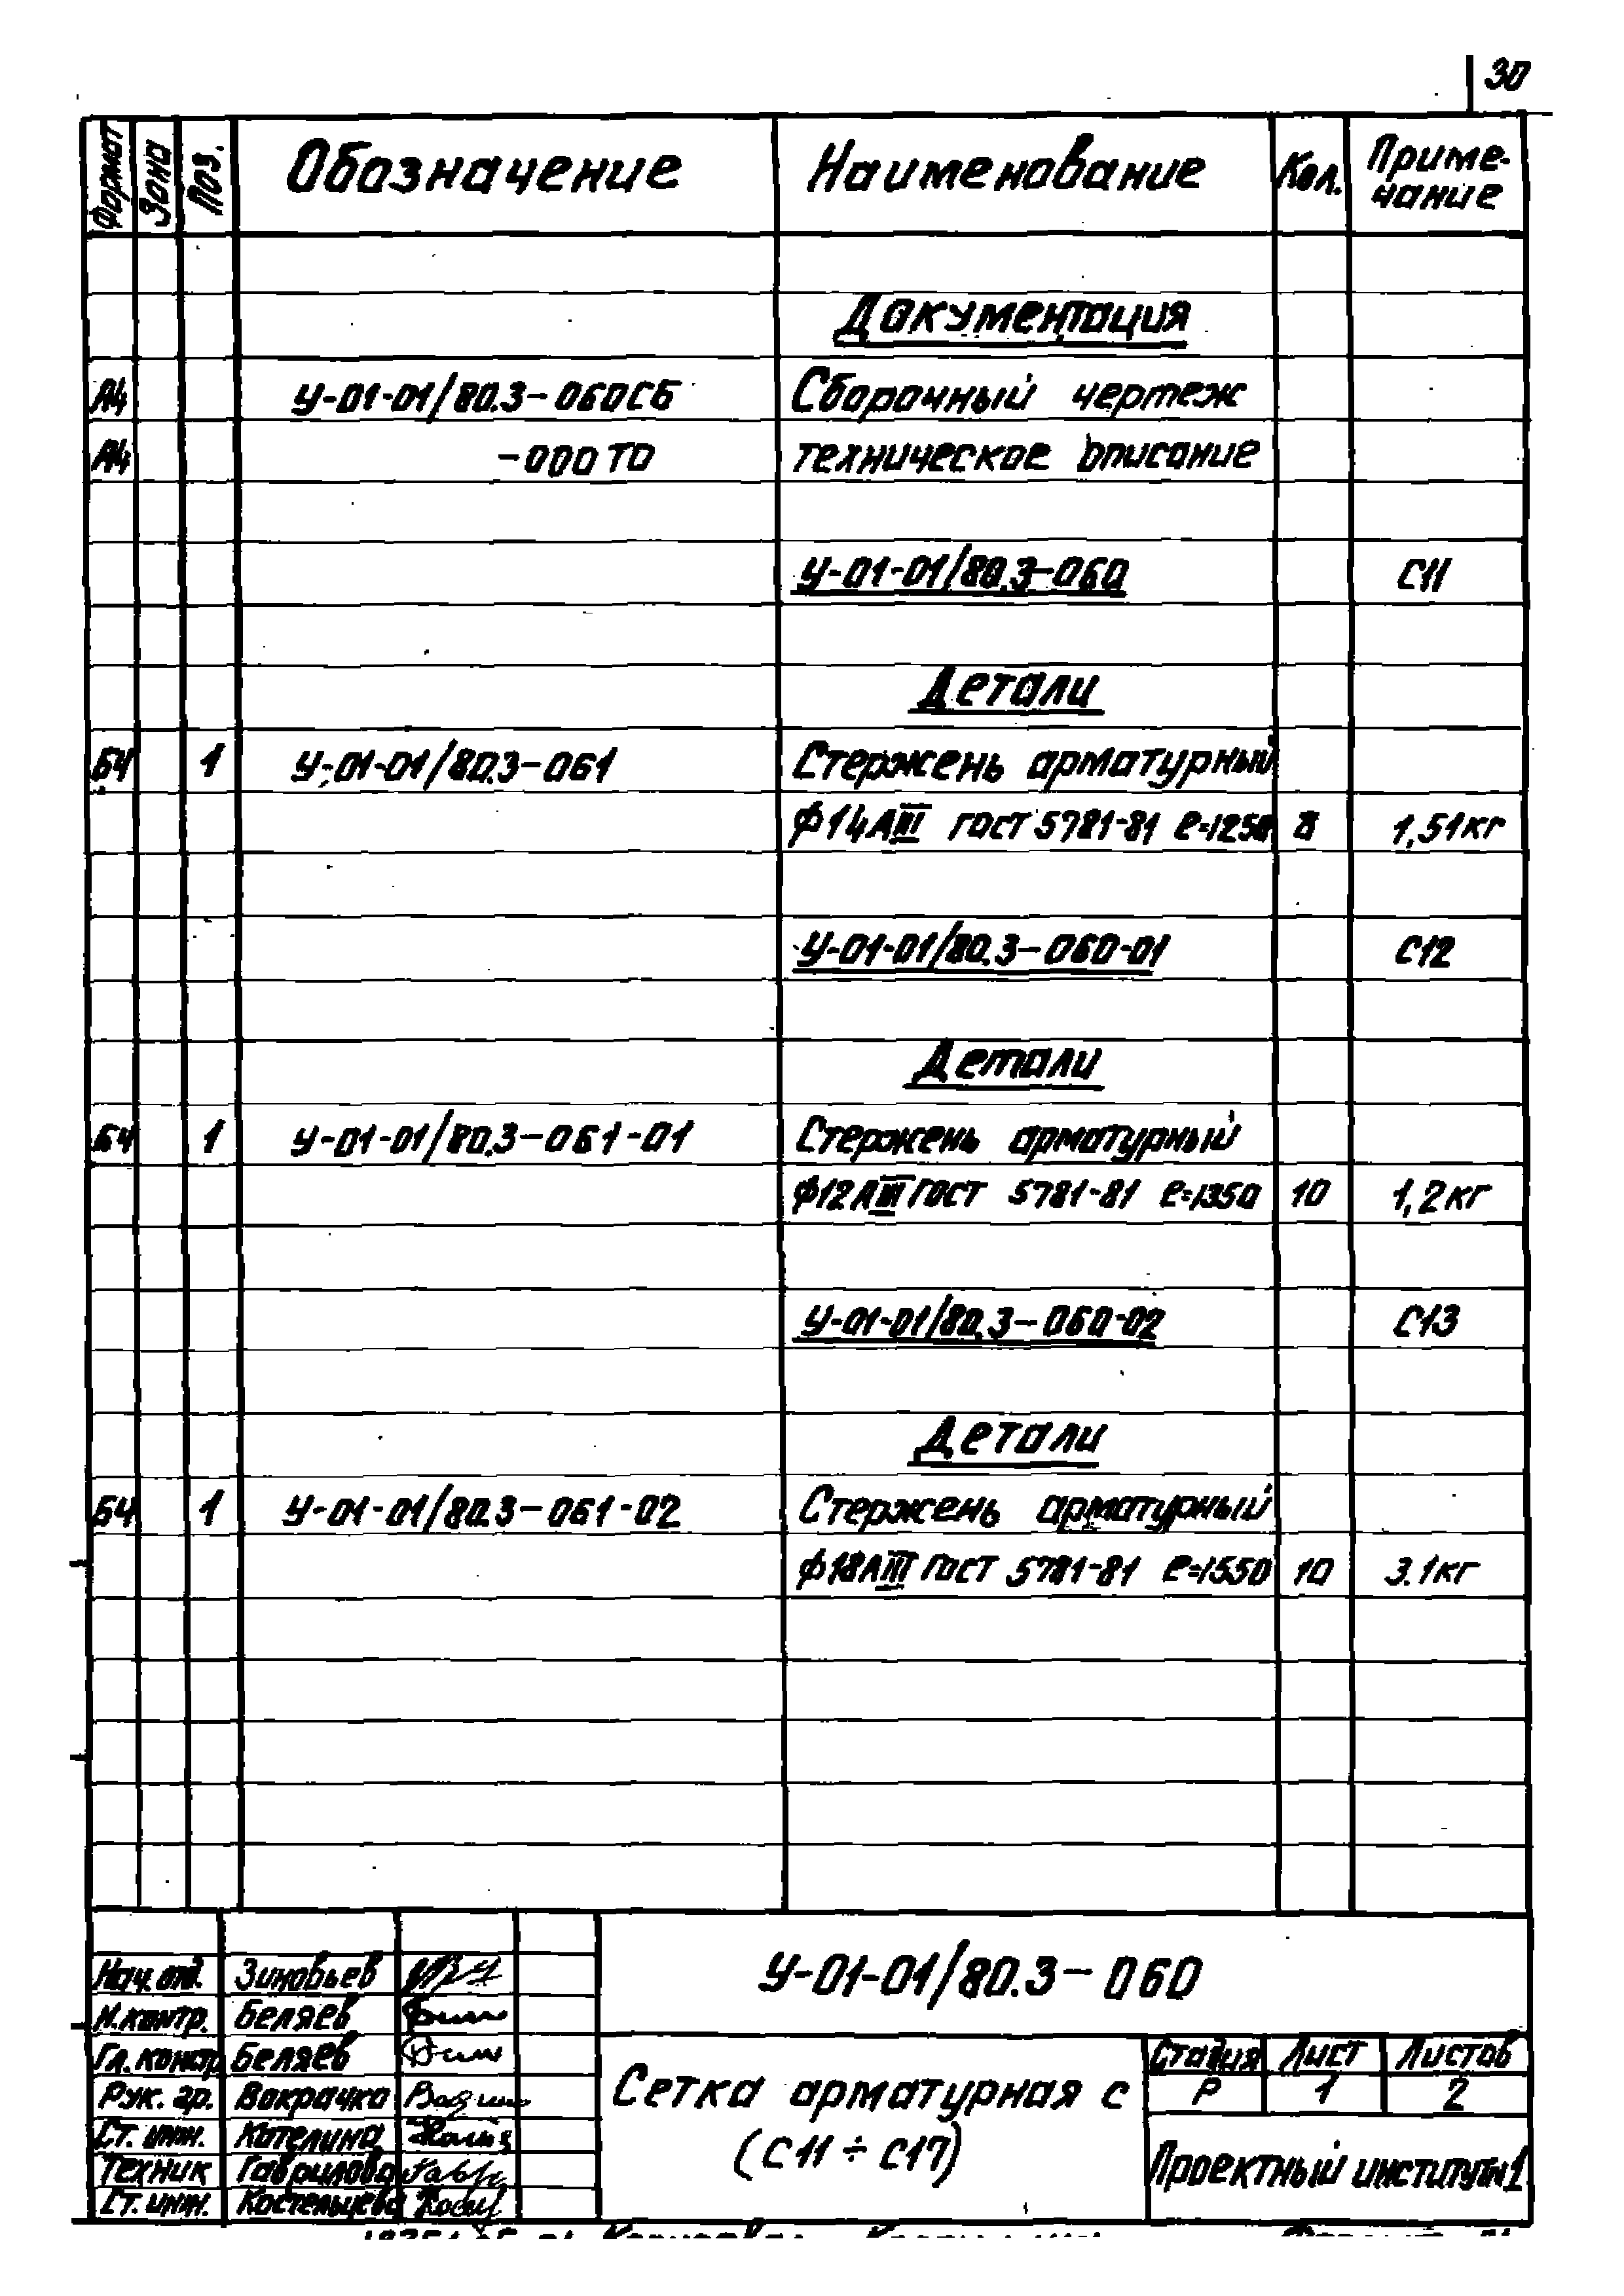 30
Формат Зона Поз. Обозначение Наименование Кол. Приме-
чание
Документация
А4 У-01-01/80.3-060СБ Сборочный чертеж
А4 -000 ТО техническое описание
У-01-01/80.3-060 С11
Детали
Б4 1 У-01-01/80.3-061 Стержень арматурный
Ф14АIII ГОСТ 5781-81 ℓ=1250 8 1,51кг
У-01-01/80.3-060-01 С12
Детали
Б4 1 У-01-01/80.3-061-01 Стержень арматурный
Ф12АIII ГОСТ 5781-81 ℓ=1350 10 1,2кг
У-01-01/80.3-060-02 С13
Детали
Б4 1 У-01-01/80.3-061-02 Стержень арматурный
Ф18АIII ГОСТ 5781-81 ℓ=1550 10 3.1кг
У-01-01/80.3-060
Нач. отд. Зиновьев
Н.контр. Беляев
Гл. констр Беляев
Рук. гр. Вокрачко
Ст. инж. Котелина
Техник Гаврилова
Ст. инж. Костельцева
Сетка арматурная С
(С11 ÷ С17)
Стадия Лист Листов
Р 1 2
Проектный институт №1